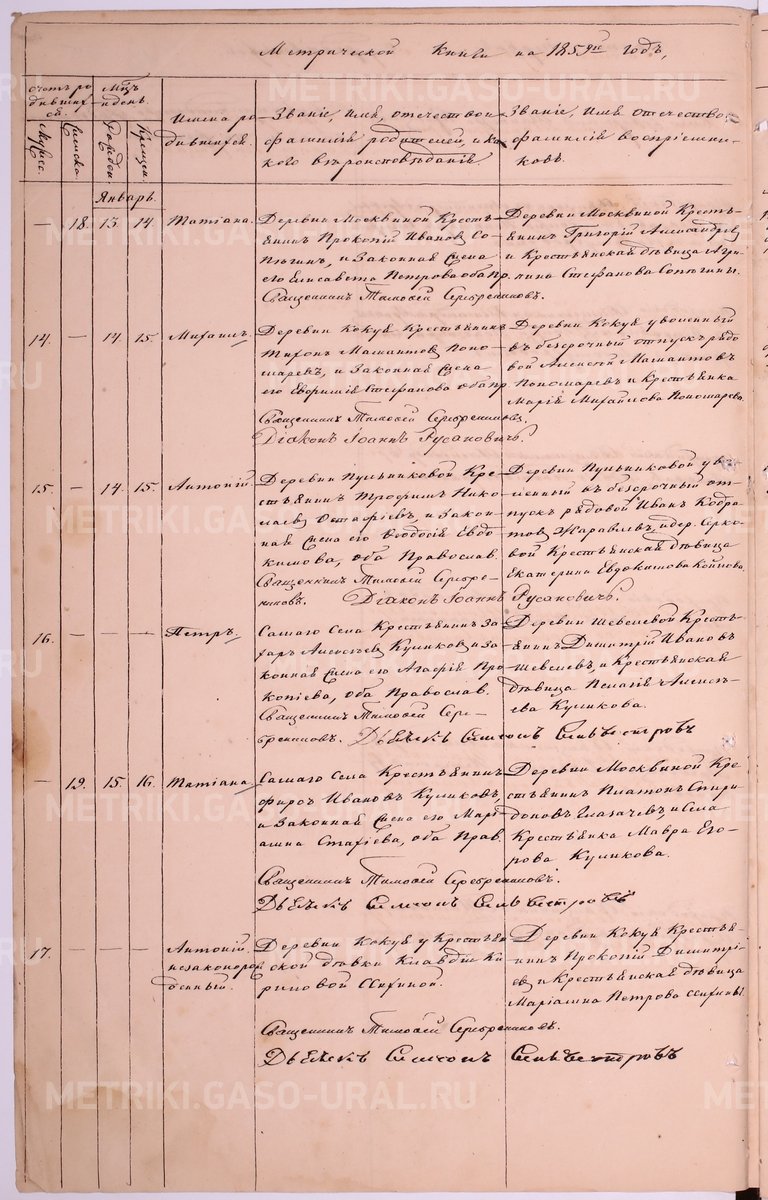 Метрической Книги на 1859й годъ,
Счетъ ро
дивших
ся.
Мцъ
и день.
Имена ро
дившихся.
Званіе, имя, отечество и
фамилія родителей, и ка
кого вѣроисповѣданія
Званіе, Имя отечество
фамилія воспріемни-
ковъ.
Мужес.
Женска.
рожден
крещен.
Январь.
— 18. 13. 14. Татіана.
Деревни Москвиной Кресть-
янинъ Прокопій Ивановъ Со-
и Законная Жена
его Елисавета Петрова оба пр.
Священникъ Тимофей Серебренниковъ.
Деревни Москвиной Кресть-
янинъ Григорій Александров
и Крестьянская дѣвица Агри-
пина Стефанова
14. — 14. 15. Михаилъ,
Деревни Кокуя Крестьянинъ
Тихонъ Мамантовъ Поно-
маревъ, и Законная Жена
его Евфимія Стефанова оба пр
Священникъ Тимофей Серебренниковъ.
Діаконъ Іоаннъ Русановичъ.
Деревни Кокуя уволенный
въ безсрочный отпускъ рядо
вой Алексей Мамантовъ
Пономаревъ и Крестьянка
Марія Михайлова Пономарева.
15. — 14. 15. Антоній
Деревни Пульниковой Кре-
стьянинъ Трофимъ Нико-
лаевъ Остафіевъ, и Закон-
ная Жена его Феодосія Евдо-
кимова, оба Православ.
Священникъ Тимофей Серебре-
нниковъ. Діаконъ Іоаннъ Русановичъ.
Деревни Пульниковой уво
ленный въ безсрочный от-
пускъ рядовой Иванъ Кодра
товъ Журавлевъ, и дер.
вой Крестьянская дѣвица
Екатерина Евдокимова
16. — — — Петръ,
Самаго Села Крестьянинъ За-
харъ Алексѣевъ Куликовъ и за
конная Жена его Агафія Про
копіева, оба Православ.
Священникъ Тимофей Сере-
бренниковъ. Дьячекъ Симеонъ Сильвестровъ
Деревни Шевелевой Кресть-
янинъ Димитрій Ивановъ
Шевелевъ, и Крестьянская
дѣвица Пелагія Алексѣ-
ева Куликова.
— 19. 15. 16. Татіана
Самаго Села Крестьянинъ
Ивановъ Куликовъ,
и Законная Жена его Марі-
амна Стахіева, оба Прав.
Священникъ Тимофей Серебренниковъ.
Дьячекъ Симеонъ Сильвестровъ
Деревни Москвиной Кре
стьянинъ Платонъ Спири-
доновъ Глазачевъ, и Села
Крестьянка Мавра Его-
рова Куликова.
17. — — — Антоній
незаконорож
денный.
Деревни Кокуя у Крестьян
ской дѣвки Клавдіи Ки
риловой
Священникъ Тимофей Серебренниковъ.
Дьячекъ Симеонъ Сильвестровъ
Деревни Кокуя Крестья-
нинъ Прокопій Димитрі-
евъ и Крестьянская дѣвица
Маріамна Петрова
METRIKI.GASO-URAL.RU